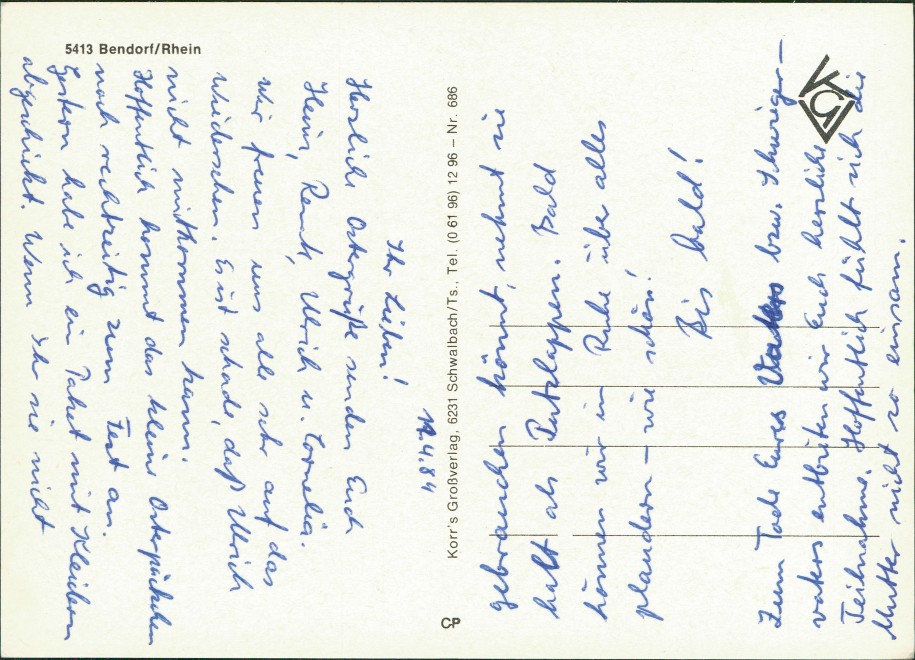 5413 Bendorf/Rhein
Ihr Lieben!
Herzliche Ostergrüße senden Euch
Ulrich u. Cornelia.
Wir freuen uns alle sehr auf das
Wiedersehen. Es ist schade, daß Ulrich
nicht mitkommen kann.
Hoffentlich kommt das kleine Osterpäckchen
noch rechtzeitig zum Fest an.
Gestern habe ich ein Paket mit Kleidern
abgeschickt. Wenn Ihr sie nicht
Korr's Großverlag, 6231 Schwalbach/Ts., Tel. (0 61 96) 12 96 – Nr. 686
CP
gebrauchen könnt, nehmt sie
halt als Putzlappen. Bald
können wir in Ruhe über alles
plaudern – wie schön!
Bis bald!
Zum Tode Eures Vaters bzw. Schwieger-
vaters entbieten wir Euch herzliche
Teilnahme. Hoffentlich fühlt sich die
Mutter nicht so einsam.